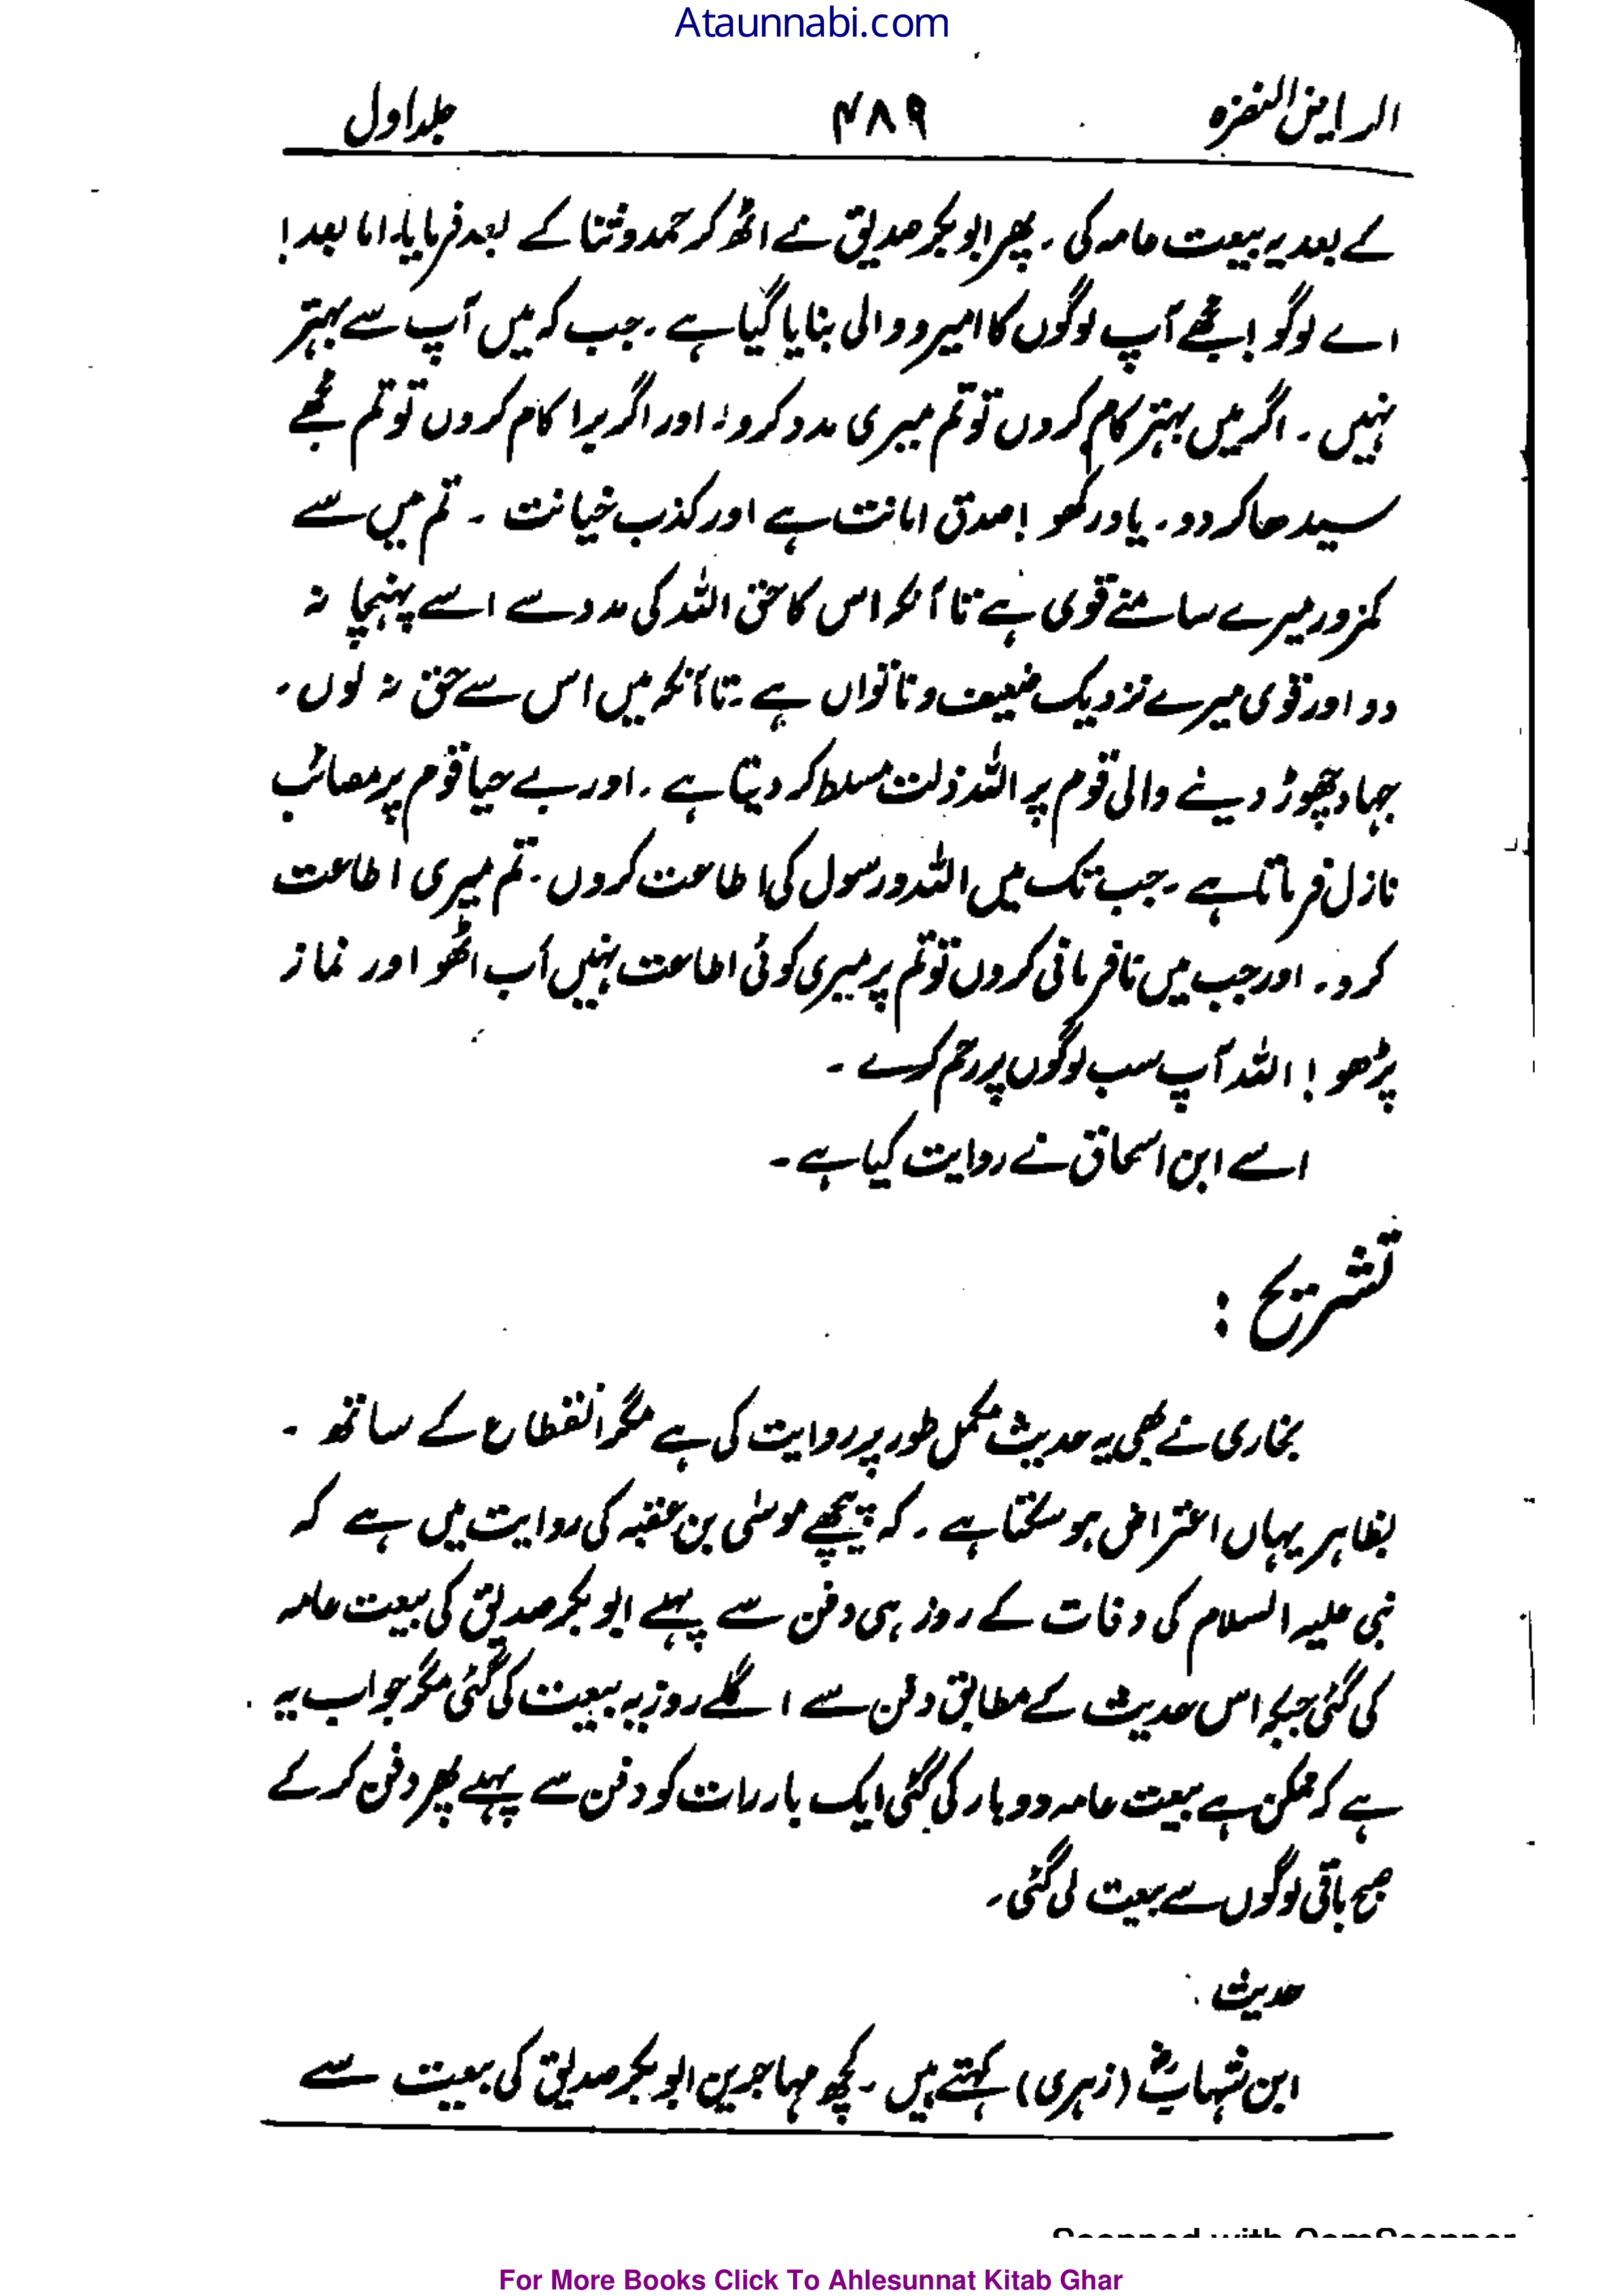 Ataunnabi.com
الریاض النضرہ ۴۸۹ جلد اول
کے بعد یہ بیعت عامہ کی ۔ پھر ابوبکر صدیق نے اٹھ کر حمد و ثنا کے بعد فرمایا، اما بعد!
اے لوگو! مجھے آپ لوگوں کا امیر و والی بنایا گیا ہے ۔ جب کہ میں آپ سے بہتر
نہیں ۔ اگر میں بہتر کام کروں تو تم میری مدد کرو، اور اگر برا کام کروں تو تم مجھے
سیدھا کر دو ۔ یاد رکھو! صدق امانت ہے اور کذب خیانت ۔ تم میں سے
کمزور میرے سامنے قوی ہے تا آنکہ اس کا حق اللہ کی مدد سے اسے پہنچا نہ
دو اور قوی میرے نزدیک ضعیف و ناتواں ہے ۔ تا آنکہ میں اس سے حق نہ لوں ۔
جہاد چھوڑ دینے والی قوم پر اللہ ذلت مسلط کر دیتا ہے ۔ اور بے حیا قوم پر مصائب
نازل فرماتا ہے ۔ جب تک میں اللہ و رسول کی اطاعت کروں ۔ تم میری اطاعت
کرو ۔ اور جب میں نافرمانی کروں تو تم پر میری کوئی اطاعت نہیں اب اٹھو اور نماز
پڑھو! اللہ آپ سب لوگوں پر رحم کرے ۔
اسے ابن اسحاق نے روایت کیا ہے ۔
تشریح :
بخاری نے بھی یہ حدیث مکمل طور پر روایت کی ہے مگر انقطاع کے ساتھ ۔
بظاہر یہاں اعتراض ہو سکتا ہے ۔ کہ پیچھے موسٰی بن عقبہ کی روایت میں ہے کہ
نبی علیہ السلام کی وفات کے روز ہی دفن سے پہلے ابوبکر صدیق کی بیعت عامہ
کی گئی جبکہ اس حدیث کے مطابق دفن سے اگلے روز یہ بیعت کی گئی مگر جواب یہ
ہے کہ ممکن ہے بیعت عامہ دو بار کی گئی ایک بار رات کو دفن سے پہلے پھر دفن کر کے
صبح باقی لوگوں سے بیعت لی گئی ۔
حدیث :
ابن شہابؓ (زہری) کہتے ہیں ۔ کچھ مہاجرین ابوبکر صدیق کی بیعت سے
Scanned with CamScanner
For More Books Click To Ahlesunnat Kitab Ghar